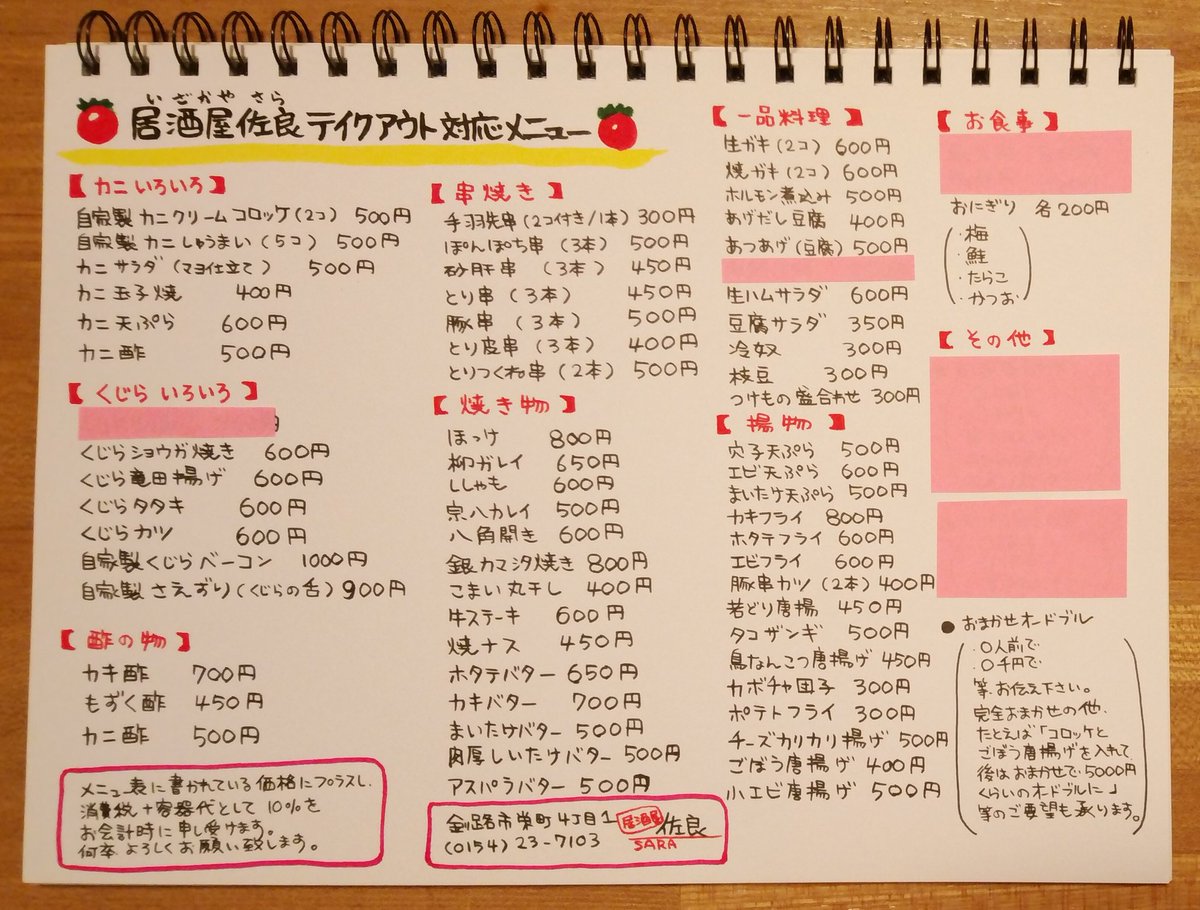 いざかや さら
居酒屋佐良テイクアウト対応メニュー
【カニいろいろ】
自家製カニクリームコロッケ(2コ) 500円
自家製カニしゅうまい(5コ) 500円
カニサラダ(マヨ仕立て) 500円
カニ玉子焼 400円
カニ天ぷら 600円
カニ酢 500円
【くじらいろいろ】
くじらショウガ焼き 600円
くじら竜田揚げ 600円
くじらタタキ 600円
くじらカツ 600円
自家製くじらベーコン 1000円
自家製さえずり(くじらの舌) 900円
【酢の物】
カキ酢 700円
もずく酢 450円
カニ酢 500円
メニュー表に書かれている価格にプラスし、
消費税+容器代として10%を
お会計時に申し受けます。
何卒よろしくお願い致します。
【串焼き】
手羽先串(2コ付き/1本) 300円
ぽんぽち串(3本) 500円
砂肝串(3本) 450円
とり串(3本) 450円
豚串(3本) 500円
とり皮串(3本) 400円
とりつくね串(2本) 500円
【焼き物】
ほっけ 800円
柳カレイ 650円
ししゃも 600円
宗八カレイ 500円
八角開き 600円
銀カマシタ焼き 800円
こまい丸干し 400円
牛ステーキ 600円
焼ナス 450円
ホタテバター 650円
カキバター 700円
まいたけバター 500円
肉厚しいたけバター 500円
アスパラバター 500円
釧路市栄町4丁目1
(0154)23-7103
居酒屋 佐良
SARA
【一品料理】
生ガキ(2コ) 600円
焼ガキ(2コ) 600円
ホルモン煮込み 500円
あげだし豆腐 400円
あつあげ(豆腐) 500円
生ハムサラダ 600円
豆腐サラダ 350円
冷奴 300円
枝豆 300円
つけもの盛合わせ 300円
【揚物】
穴子天ぷら 500円
エビ天ぷら 600円
まいたけ天ぷら 500円
カキフライ 800円
ホタテフライ 600円
エビフライ 600円
豚串カツ(2本) 400円
若どり唐揚 450円
タコザンギ 500円
鳥なんこつ唐揚げ 450円
カボチャ団子 300円
ポテトフライ 300円
チーズカリカリ揚げ 500円
ごぼう唐揚げ 400円
小エビ唐揚げ 500円
【お食事】
おにぎり 各200円
・梅
・鮭
・たらこ
・かつお
【その他】
●おまかせオードブル
・〇人前で
・〇千円で
等、お伝え下さい。
完全おまかせの他、
たとえば「コロッケと
ごぼう唐揚げを入れて、
後はおまかせで、5000円
くらいのオードブルに」
等のご要望も承ります。